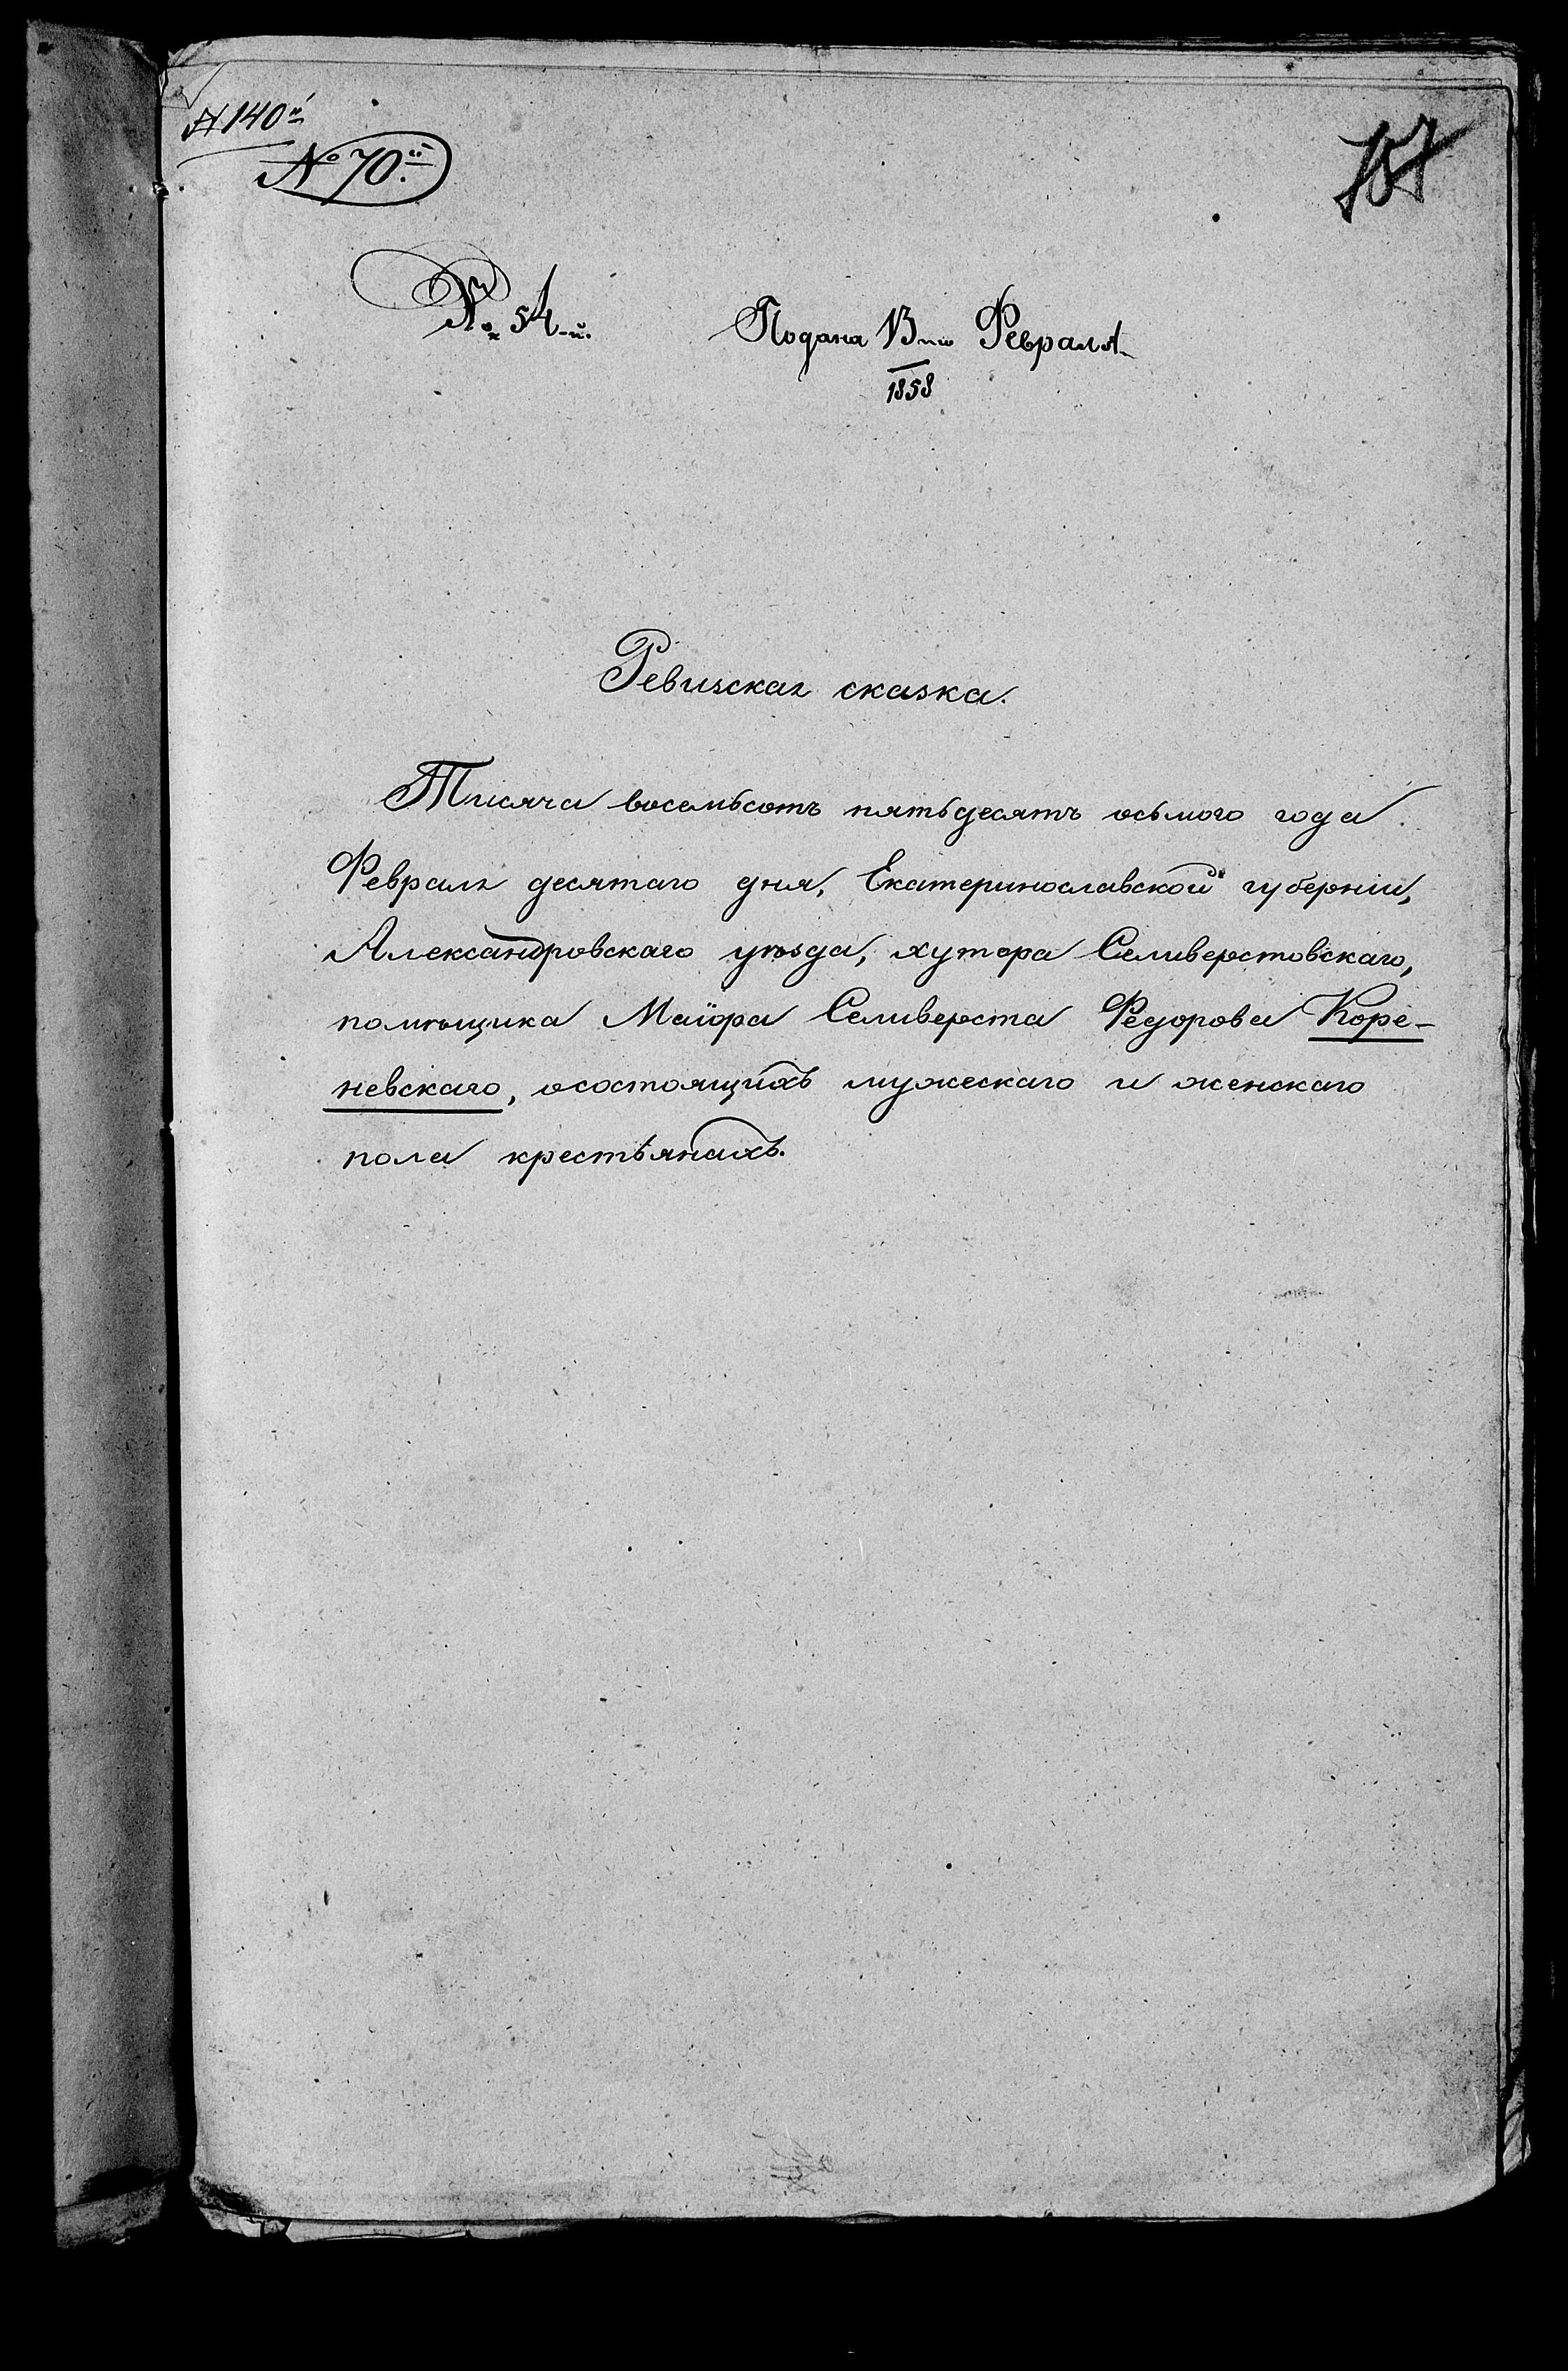 № 140й
№ 70й.
№ 54-й. Подана 13го Февраля
1858
Ревизская сказка.
Тисяча восемьсотъ пятьдесятъ осьмого года
Февраля десятаго дня, Екатеринославской губерніи,
Александровскаго уѣзда, хутора Селиверстовскаго,
помѣщика Маіора Селиверста Федорова Коре-
невскаго, осостоящихъ мужескаго и женскаго
пола крестьянахъ.